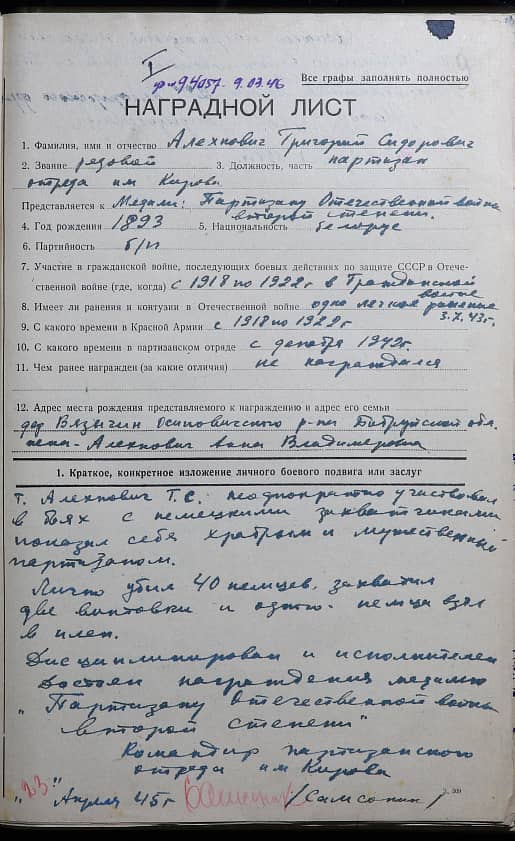 I
94057. 9.03.46
Все графы заполнять полностью
НАГРАДНОЙ ЛИСТ
1. Фамилия, имя и отчество Алехнович Григорий Сидорович
2. Звание рядовой 3. Должность, часть партизан
отряда им Кирова
Представляется к Медали: Партизану Отечественной войны
второй степени.
4. Год рождения 1893 5. Национальность белорус
6. Партийность б/п
7. Участие в гражданской войне, последующих боевых действиях по защите СССР в Отече-
ственной войне (где, когда) с 1918 по 1922 г в Гражданской
войне
8. Имеет ли ранения и контузии в Отечественной войне одно легкое ранение
3.7.43 г.
9. С какого времени в Красной Армии с 1918 по 1922 г
10. С какого времени в партизанском отряде с декабря 1942 г.
11. Чем ранее награжден (за какие отличия) не награждался
12. Адрес места рождения представляемого к награждению и адрес его семьи
дер Вязычин Осиповичского р-на Бобруйской обл.
жена - Алехнович Анна Владимировна
1. Краткое, конкретное изложение личного боевого подвига или заслуг
т. Алехнович Г.С. неоднократно участвовал
в боях с немецкими захватчиками
показал себя храбрым и мужественный
партизаном.
Лично убил 40 немцев, захватил
две винтовки и одного немца взял
в плен.
Дисциплинирован и исполнителен
Достоин награждения медалью
„Партизану Отечественной войны
второй степени"
Командир партизанского
отряда им Кирова
„23" Апреля 45 г /Самсонин/